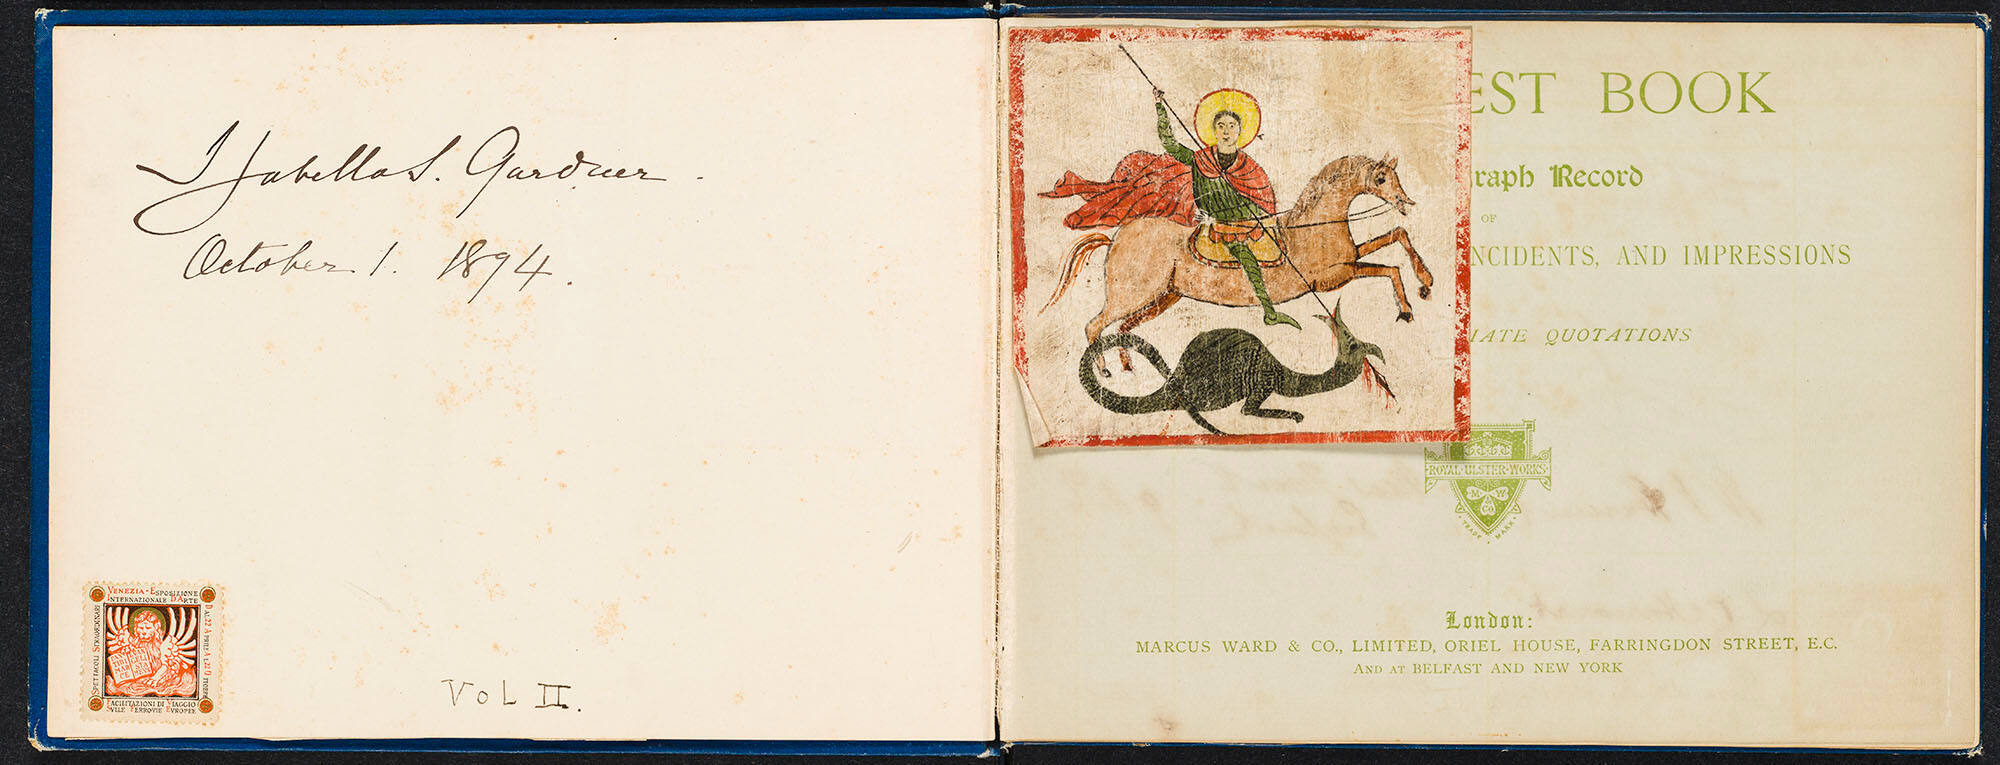 Isabella S. Gardner.
October 1. 1894.
VENEZIA-ESPOSIZIONE
INTERNAZIONALE D'ARTE
DAL 22 APRILE AL 22 OTTOBRE
SPETTACOLI STRAORDINARI
FACILITAZIONI DI VIAGGIO
SVLLE FERROVIE EVROPEE
VOL II.
EST BOOK
raph Record
OF
NCIDENTS, AND IMPRESSIONS
IATE QUOTATIONS
ROYAL·ULSTER·WORKS
M W
& Co
TRADE MARK
London:
MARCUS WARD & CO., LIMITED, ORIEL HOUSE, FARRINGDON STREET, E.C.
AND AT BELFAST AND NEW YORK